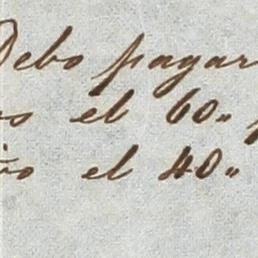 Debo pagar
el 60„
el 40„